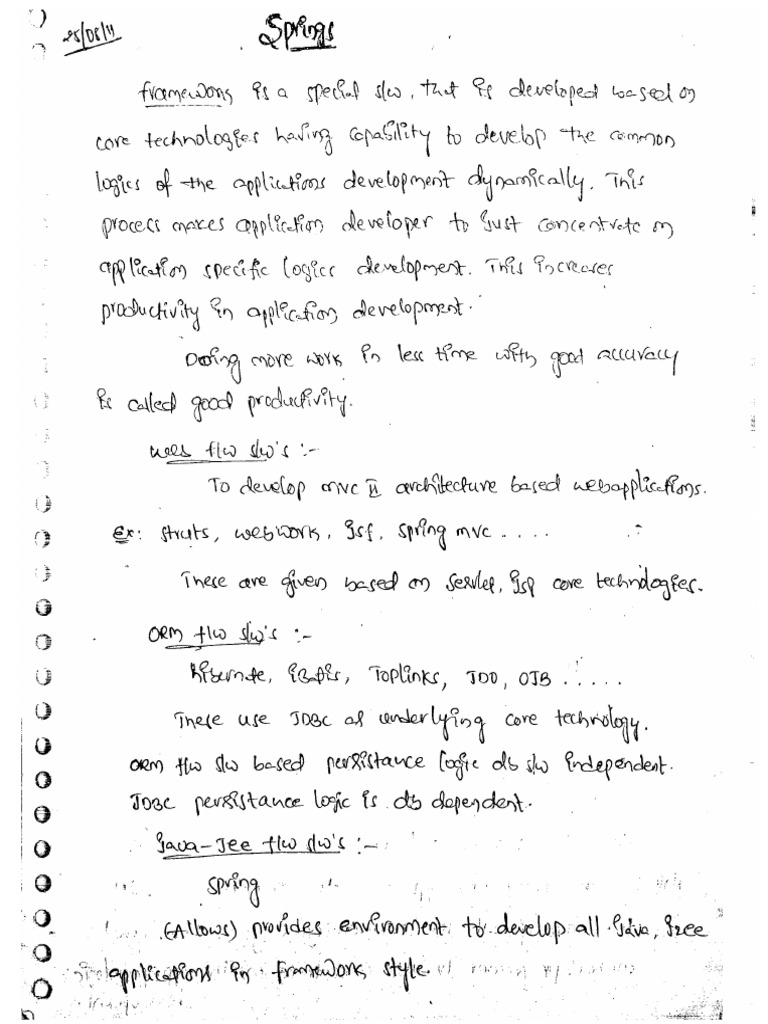 25/05/11
Springs
framework is a special s/w, that is developed based on
core technologies having capability to develop the common
logics of the applications development dynamically. This
process makes application developer to just concentrate on
application specific logics development. This increases
productivity in application development.
Doing more work in less time with good accuracy
is called good productivity.
web f/w s/w's :-
To develop mvc II architecture based webapplications.
Ex: struts, webwork, jsf, spring mvc . . . .
These are given based on servlet, jsp core technologies.
ORM f/w s/w's :-
hibernate, iBatis, Toplinks, JDO, OJB . . . . .
These use JDBC as underlying core technology.
ORM f/w s/w based persistance logic db s/w independent.
JDBC persistance logic is db dependent.
java-jee f/w s/w's :-
spring
(Allows) provides environment to develop all java, j2ee
applications in framework style.